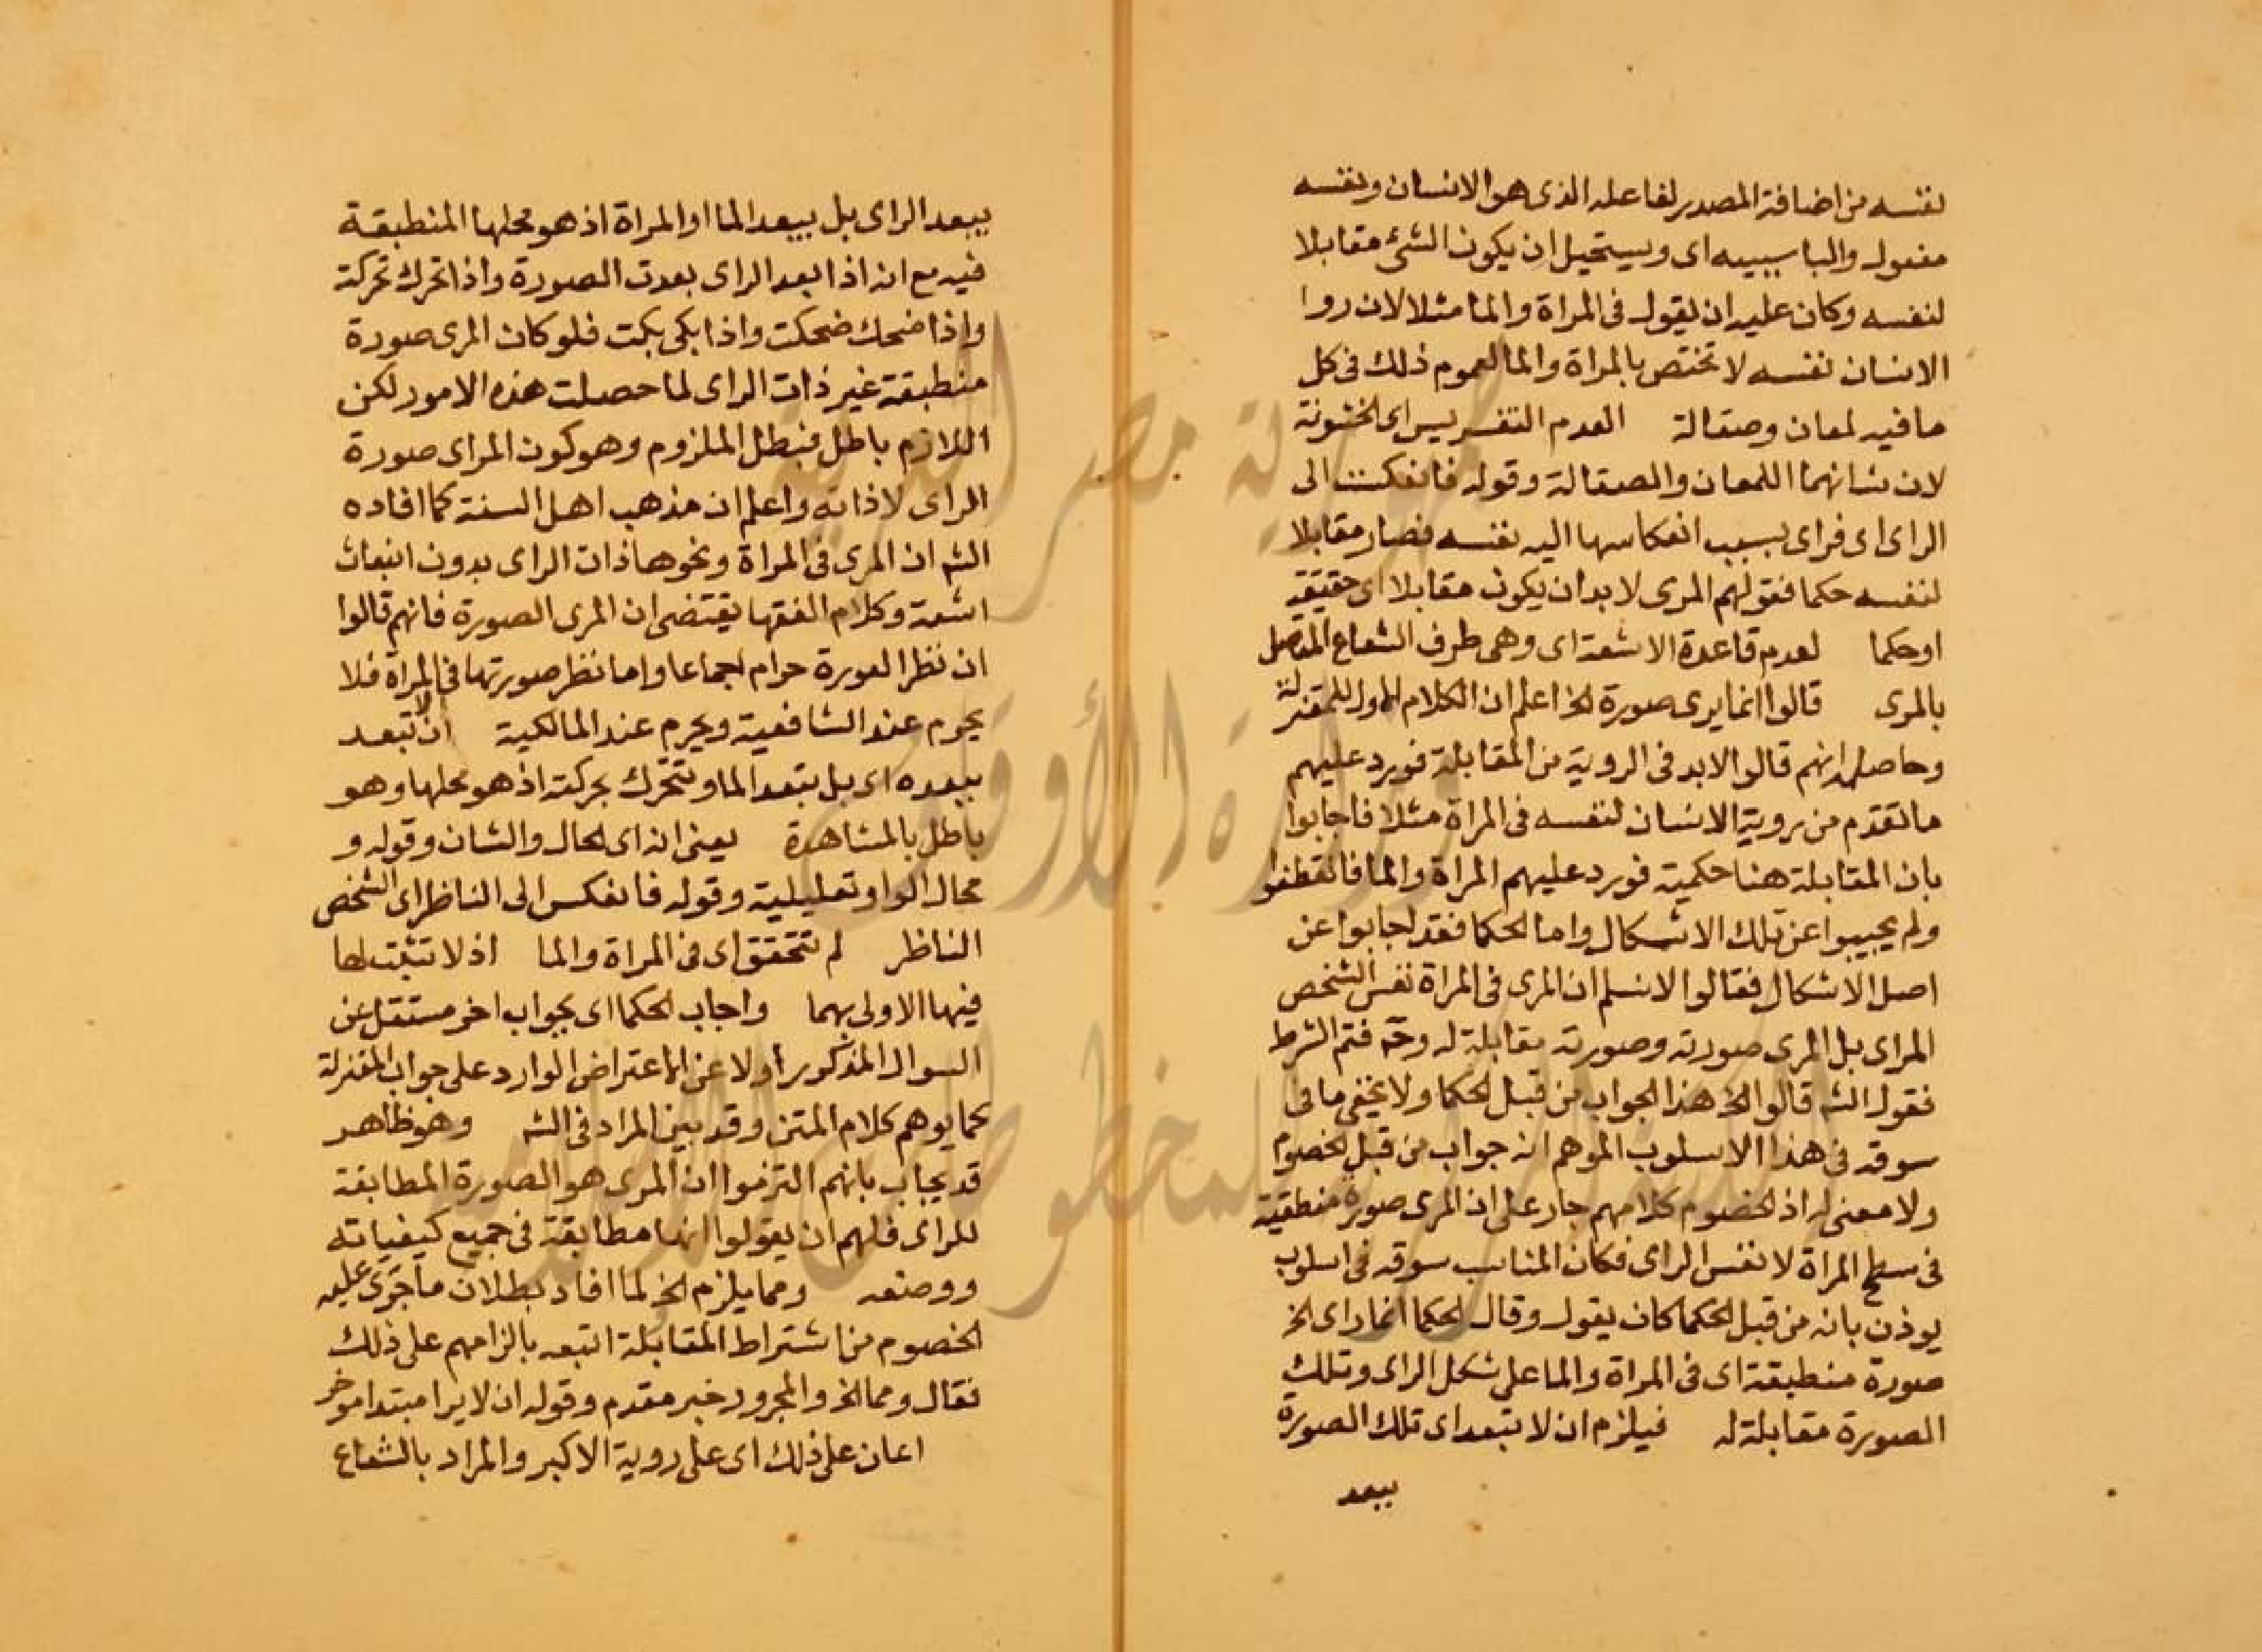 نفسه من اضافة المصدر لفاعله الذى هو الانسان ونفسه
مفعول والباسببيه اى ويستحيل ان يكون الشئ مقابلا
لنفسه وكان عليه ان يقول فى المراة والما مثلا لان روا
الانسان نفسه لا تختص بالمراة والما لعموم ذلك فى كل
ما فيه لمعان وصقالة العدم التضريس اى الخشونة
لان شانهما اللمعان والصقالة وقوله فانعكست الى
الراى اى فراى بسبب انعكاسها اليه نفسه فصار مقابلا
لنفسه حكما فقولهم المرى لا بد ان يكون مقابلا اى حقيقة
او حكما لعدم قاعدة الاشعة اى وهى طرف الشعاع المتصل
بالمرى قالوا انما يرى صورة الخ اعلم ان الكلام الاول للمعتزلة
وحاصله انهم قالوا لابد فى الروية من المقابلة فورد عليهم
ما تقدم من روية الانسان لنفسه فى المراة مثلا فاجابوا
بان المقابلة هنا حكمية فورد عليهم المراة والما فانقطعوا
ولم يجيبوا عن تلك الاشكال واما الحكما فقد اجابوا عن
اصل الاشكال فقالوا لا نسلم ان المرى فى المراة نفس الشخص
المراى بل المرى صورته وصورته مقابلة له وح فتم الشرط
فقول الشم قالوا الخ هذا الجواب من قبل الحكما ولا يخفى ما فى
سوقه فى هذا الاسلوب الموهم انه جواب من قبل الخصوم
ولا معنى له اذ الخصوم كلامهم جار على ان المرى صورة منطبقة
فى سطح المراة لا نفس الراى فكان المناسب سوقه فى اسلوب
يوذن بانه من قبل الحكما كان يقول وقال الحكما انما راى الخ
صورة منطبقة اى فى المراة والما على شكل الراى وتلك
الصورة مقابلة له فيلزم ان لا تبعد اى تلك الصورة
ببعد
ببعد الراى بل ببعد الما او المراة اذ هو محلها المنطبقة
فيه مع انه اذا بعد الراى بعدت الصورة واذا تحرك تحركت
واذا ضحك ضحكت واذا بكى بكت فلو كان المرى صورة
منطبقة غير ذات الراى لما حصلت هذه الامور لكن
اللازم باطل فبطل الملزوم وهو كون المراى صورة
الراى لا ذاته واعلم ان مذهب اهل السنة كما افاده
الشم ان المرى فى المراة ونحوها ذات الراى بدون انبعاث
اشعة وكلام الفقها يقتضى ان المرى الصورة فانهم قالوا
ان نظر العورة حرام اجماعا واما نظر صورتها فى المراة فلا
يحرم عند الشافعية ويحرم عند المالكية ان لا تبعد
ببعده اى بل بتعد الما وتتحرك بحركته اذ هو محلها وهو
باطل بالمشاهدة يعنى انه اى الحال والشان وقوله و
محال الواو تعليلية وقوله فانعكس الى الناظر اى الشخص
الناظر لم تتحقق اى فى المراة والما اذ لا تثبت لها
فيها الاولى بهما واجاب الحكما اى بجواب اخر مستقل عن
السوال المذكور اولا عن الاعتراض الوارد على جواب المعتزلة
كما يوهم كلام المتن وقد بين المراد فى الشم وهو ظاهر
قد يجاب بانهم التزموا ان المرى هو الصورة المطابقة
للراى فلهم ان يقولوا انها مطابقة فى جميع كيفياته
ووصنعه ومما يلزم الخ لما افاد بطلان ما جرى عليه
الخصوم من اشتراط المقابلة اتبعه بالزامهم على ذلك
فقال ومما الخ والمجرور خبر مقدم وقوله ان لا يرا مبتدا موخر
اعان على ذلك اى على روية الاكبر والمراد بالشعاع